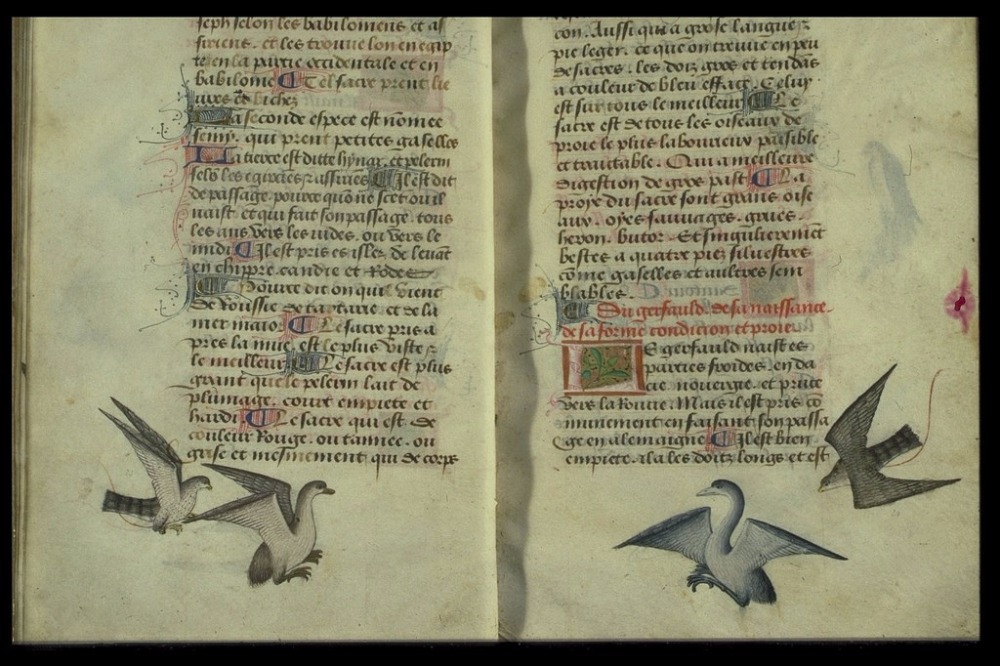 seph selon les babiloniens et as
siriens. et les trouue lon en egip
te en la partie occidentale et en
babilone Tel sacre prent lie
ures et biches
La seconde espece est nomee
semy. qui prent petites gaselles
La tierce est ditte hynair. et pelerin
selō les egipciēs & assiriēs Il est dit
de passage. pource quō ne scet ou il
naist. et qui fait son passage. tous
les ans vers les indes. ou vers le
midi Il est pris es isles de leuāt
en chippre. candie et Rodes
Pource dit on quil vient
de Roussie de tartarie et de la
mer maior Le sacre pris a
pres la mue. est le plus viste &
le meilleur Le sacre est plus
grant que le pelerin lait de
plumage. court empiete et
hardi Le sacre qui est. de
couleur Rouge. ou tannee. ou
grise et mesmement qui de corps
con. Aussi qui a grosse langue &
pie legier. ce que on treuue en peu
de sacres. les dois gros et tendās
a couleur de bleu efface. Celuy
est sur tous le meilleur Le
sacre est de tous les oiseaux de
proie le plus laborieux paisible
et traictable. Qui a meilleure
digestion de gros past La
proye du sacre sont grans oise
aux. oyes sauuages. grues.
heron. butor. Et singulierement
bestes a quatre piez siluestres
cōme gaselles et aultres sem
blables.
Du gerfauld. de sa naissance.
de sa forme condicion et proie
Le gerfauld naist es
parties froides. en da
cie. noueigie. et pruce
vers la Roucie. Mais il est pris cō
munement en faisant son passa
ge en alemaigne Il est bien
empiete. il a les doitz longs et est